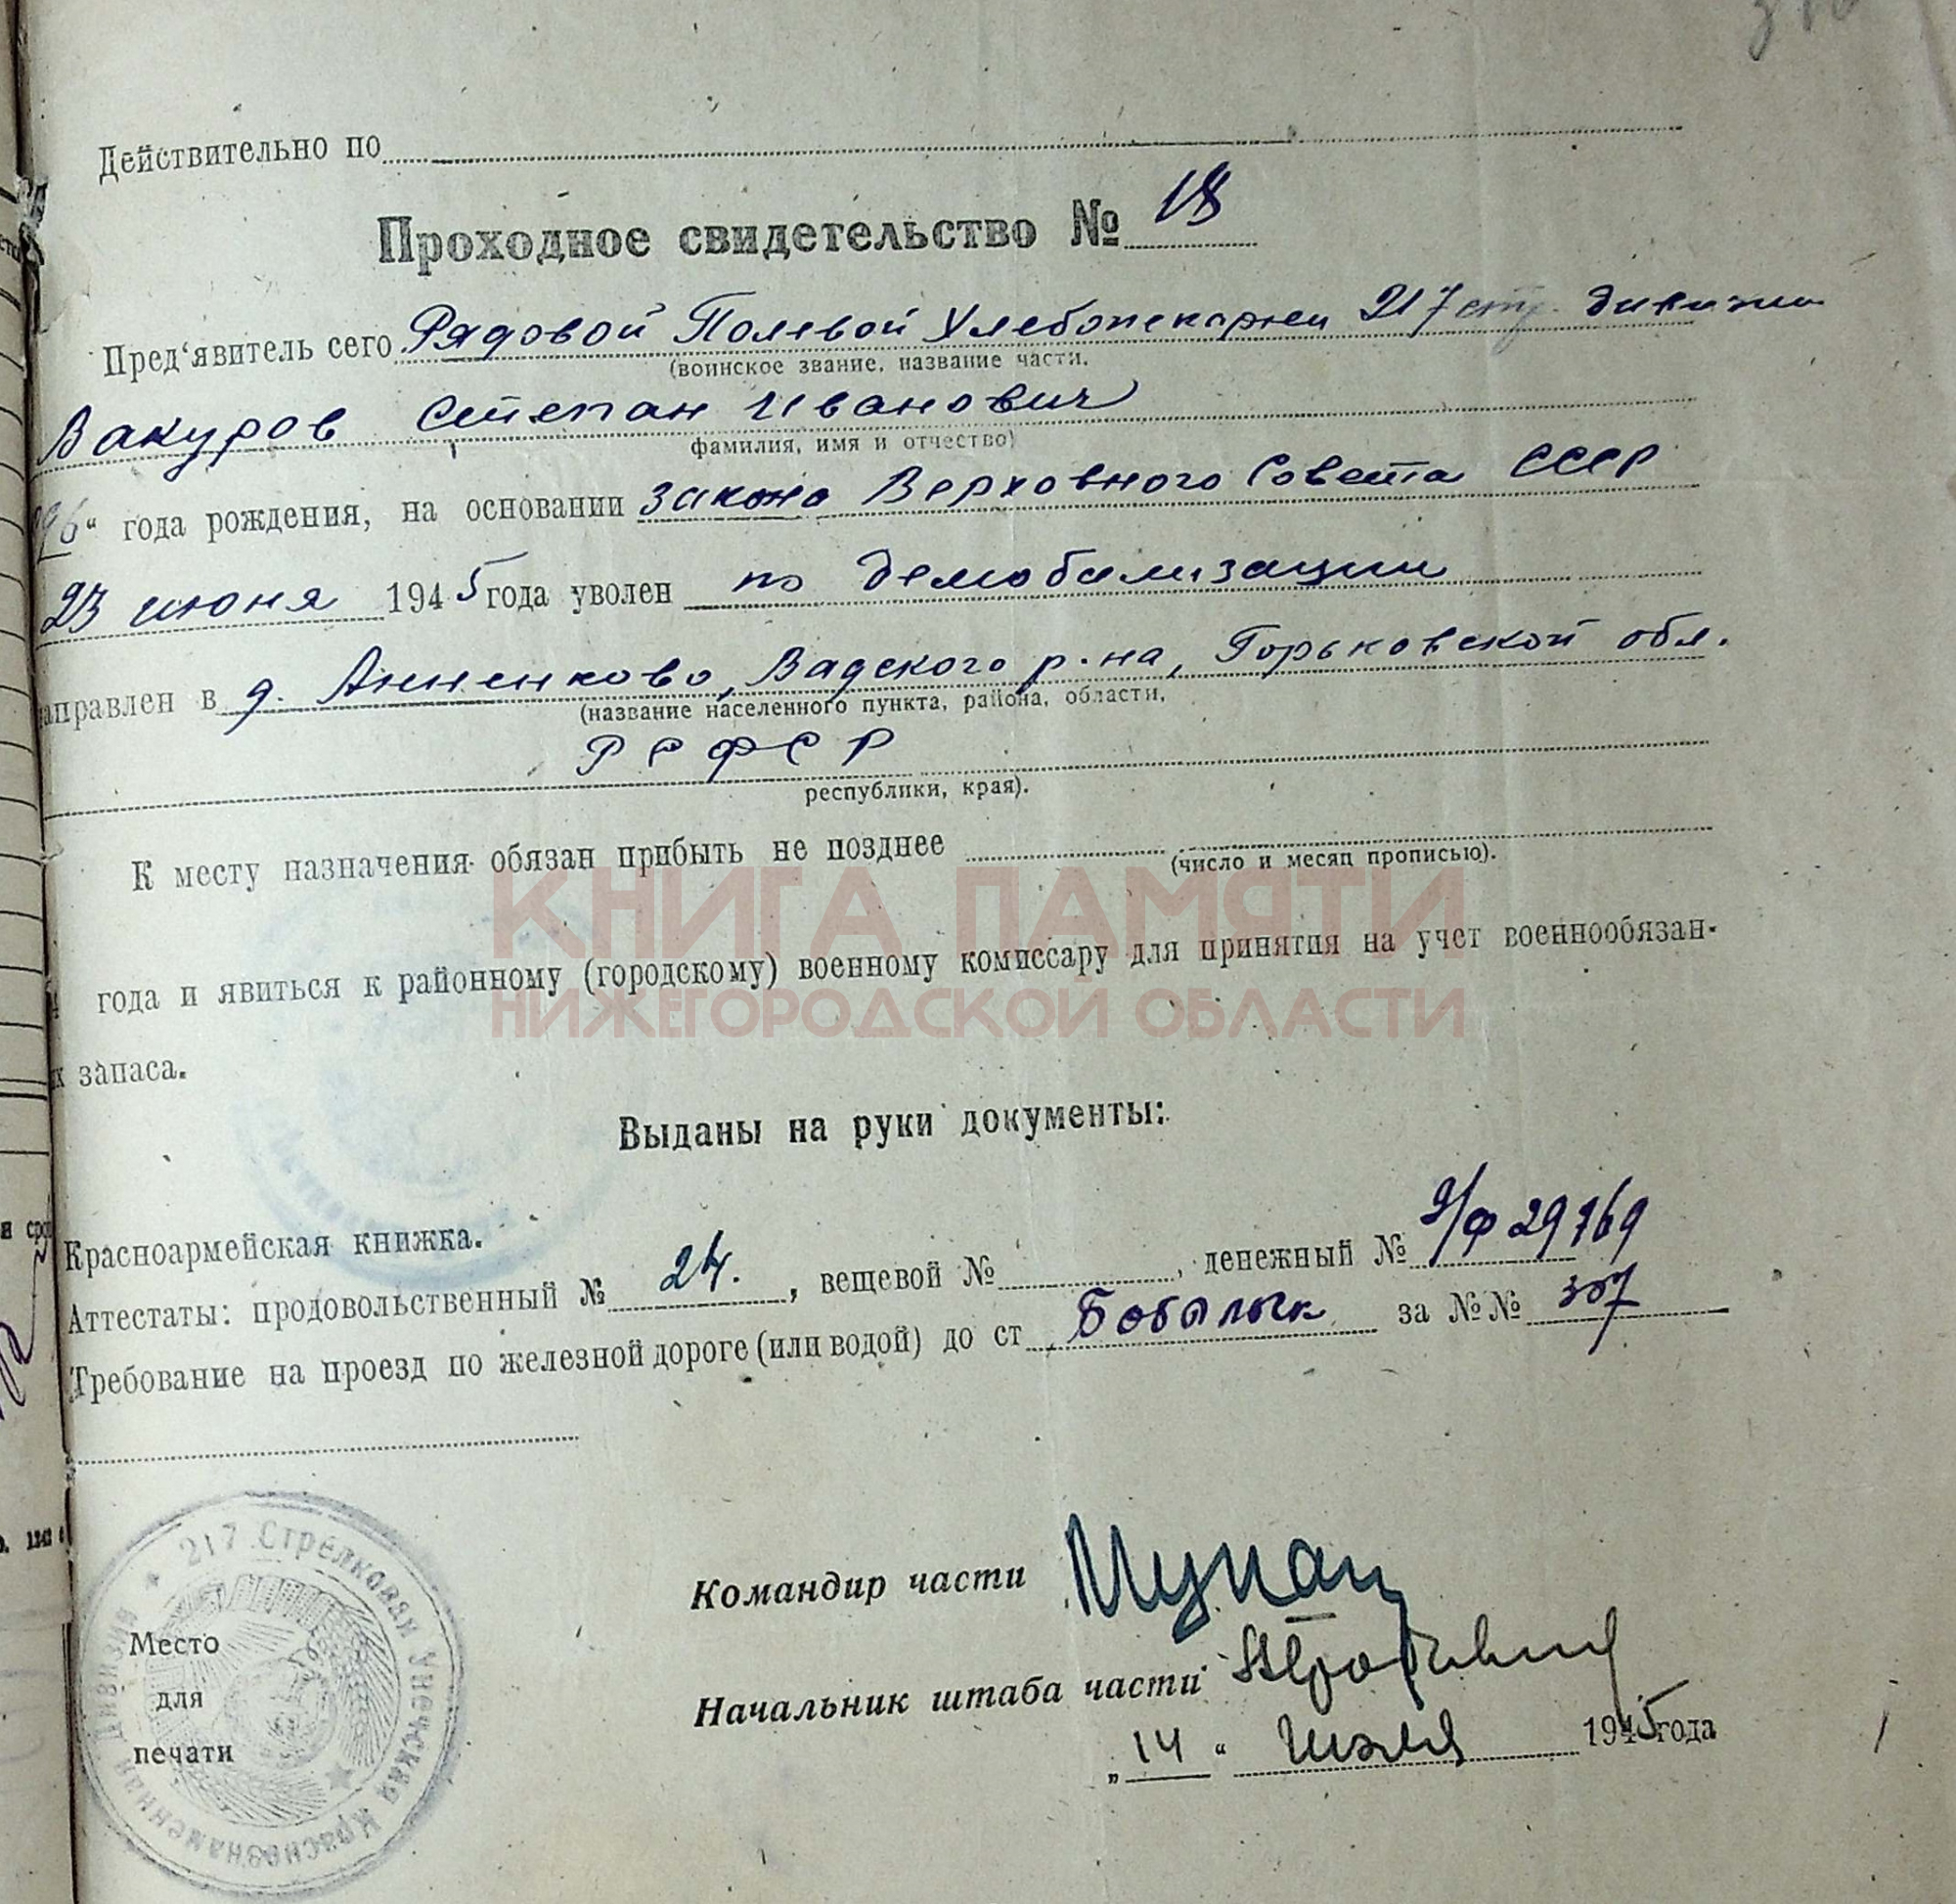 Действительно по
Проходное свидетельство № 18
Пред‘явитель сего Рядовой Полевой Хлебопекарни 217 стр. дивизии
(воинское звание, название части,
Вакуров Степан Иванович
фамилия, имя и отчество)
96“ года рождения, на основании закона Верховного Совета СССР
23 июня 1945 года уволен по демобилизации
аправлен в д. Анненково, Вадского р-на, Горьковской обл.
(название населенного пункта, района, области,
РСФСР
республики, края).
К месту назначения обязан прибыть не позднее
(число и месяц прописью).
КНИГА ПАМЯТИ
года и явиться к районному (городскому) военному комиссару для принятия на учет военнообязан-
НИЖЕГОРОДСКОЙ ОБЛАСТИ
х запаса.
Выданы на руки документы:
Красноармейская книжка.
Аттестаты: продовольственный № 24. , вещевой № , денежный №
Требование на проезд по железной дороге (или водой) до ст Бобыльск за №№ 307
217 Стрелковая Унечская Краснознаменная Дивизия
Место
для
печати
Командир части
Начальник штаба части
„14“ июля 1945 года